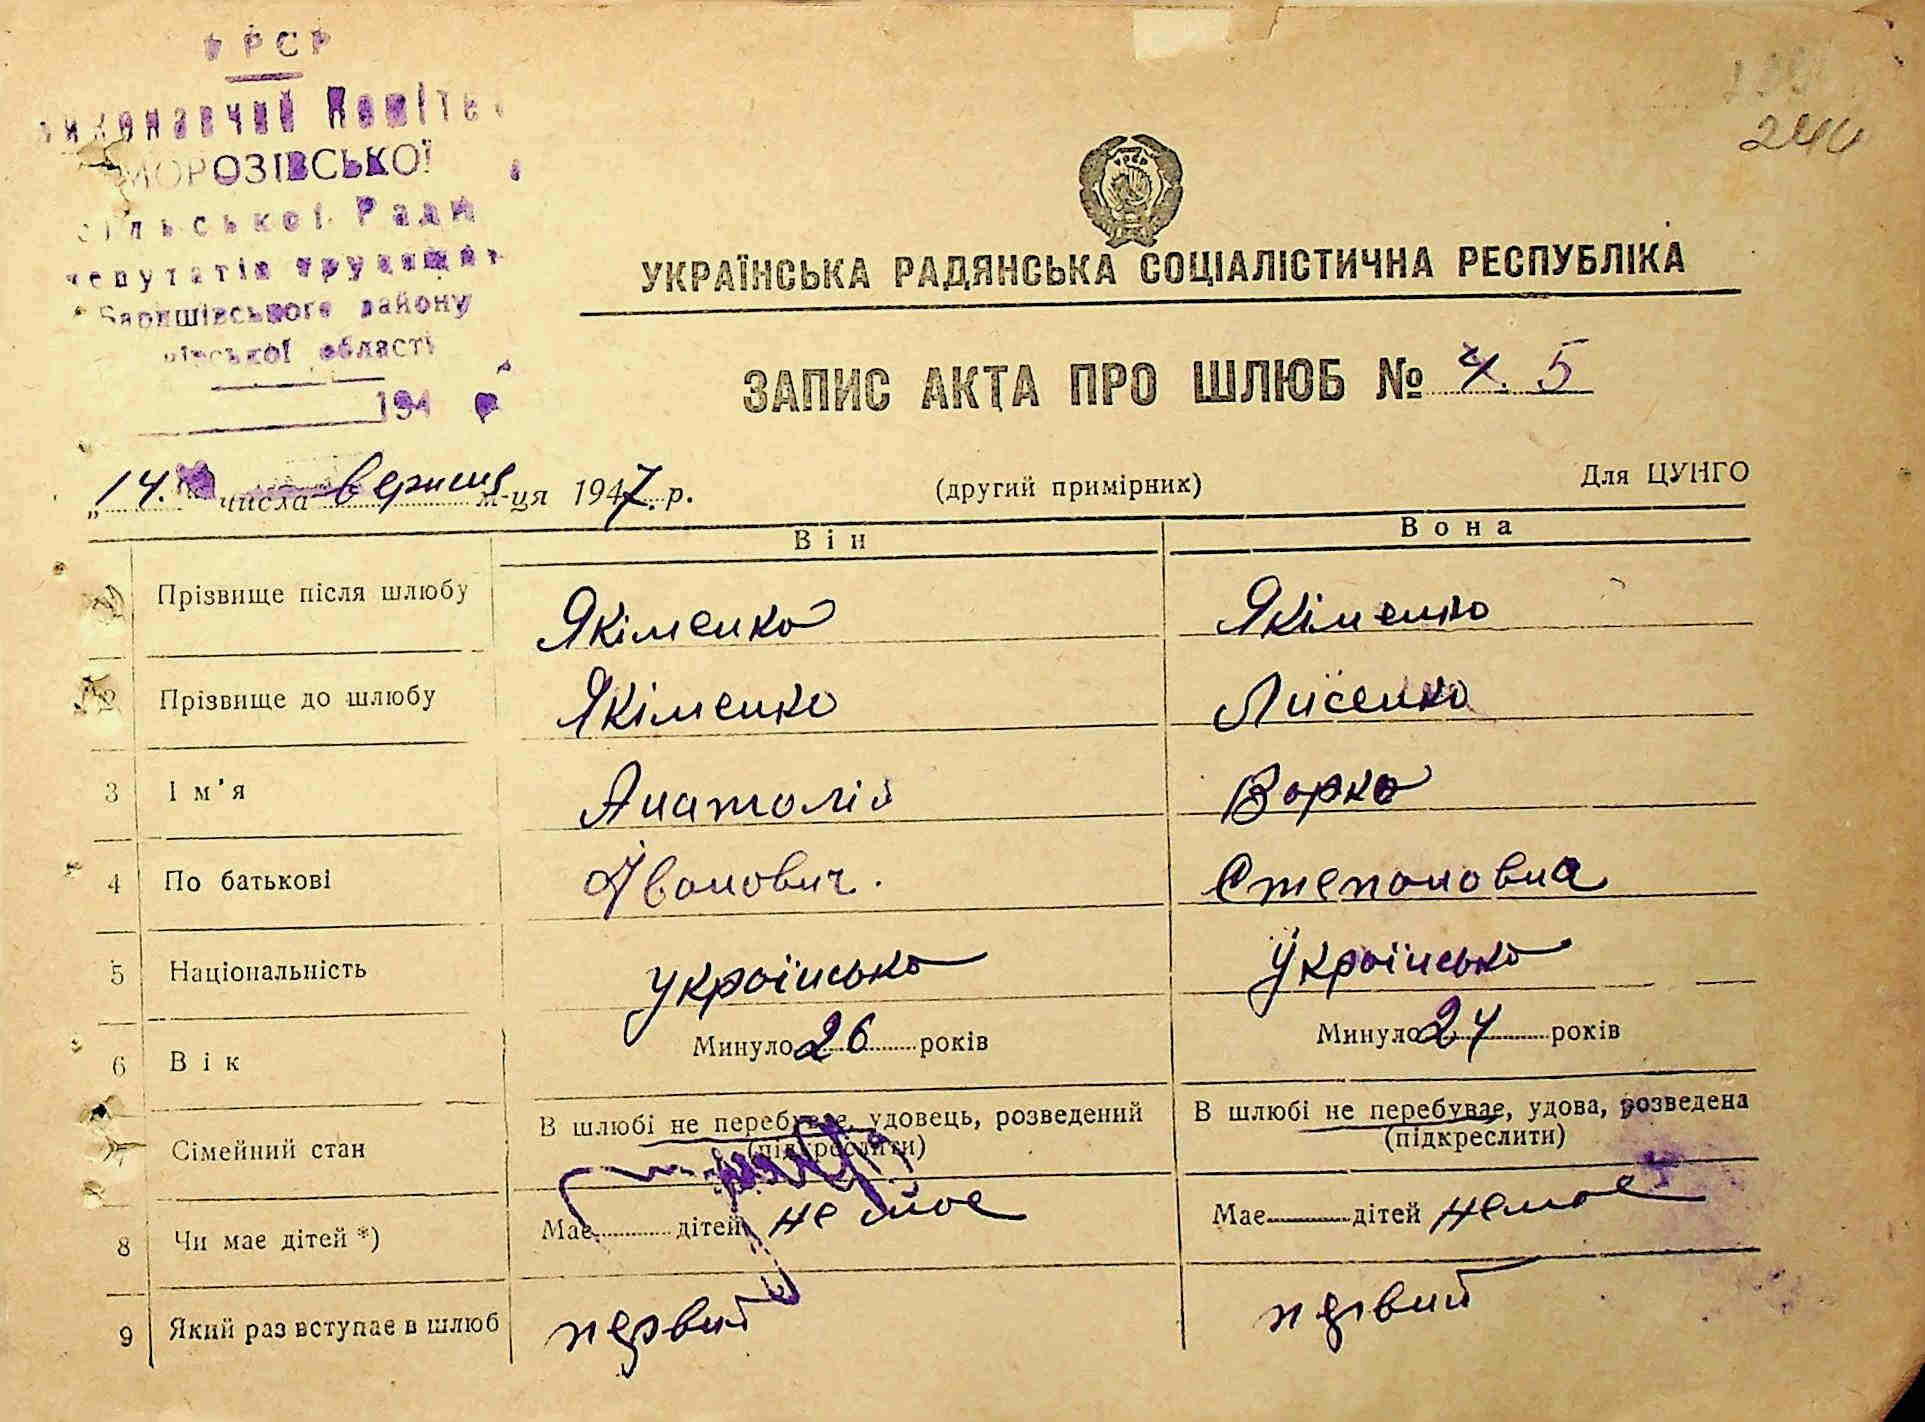 УРСР
Виконавчий Комітет
МОРОЗІВСЬКОЇ
сільської Ради
депутатів трудящих
Баришівського району
області
194
244
УРСР
УКРАЇНСЬКА РАДЯНСЬКА СОЦІАЛІСТИЧНА РЕСПУБЛІКА
ЗАПИС АКТА ПРО ШЛЮБ № 5
„14. числа вересня м-ця 1947 р. (другий примірник) Для ЦУНГО
Він Вона
Прізвище після шлюбу Якіменко Якіменко
2 Прізвище до шлюбу Якіменко Лисенко
3 Ім'я Анатолій Варка
4 По батькові Іванович. Степановна
5 Національність українська Українська
6 Вік Минуло 26 років Минуло 24 років
Сімейний стан В шлюбі не перебуває, удовець, розведений (підкреслити) В шлюбі не перебуває, удова, розведена (підкреслити)
8 Чи має дітей *) Має дітей не має Має дітей немає
9 Який раз вступає в шлюб первий первий